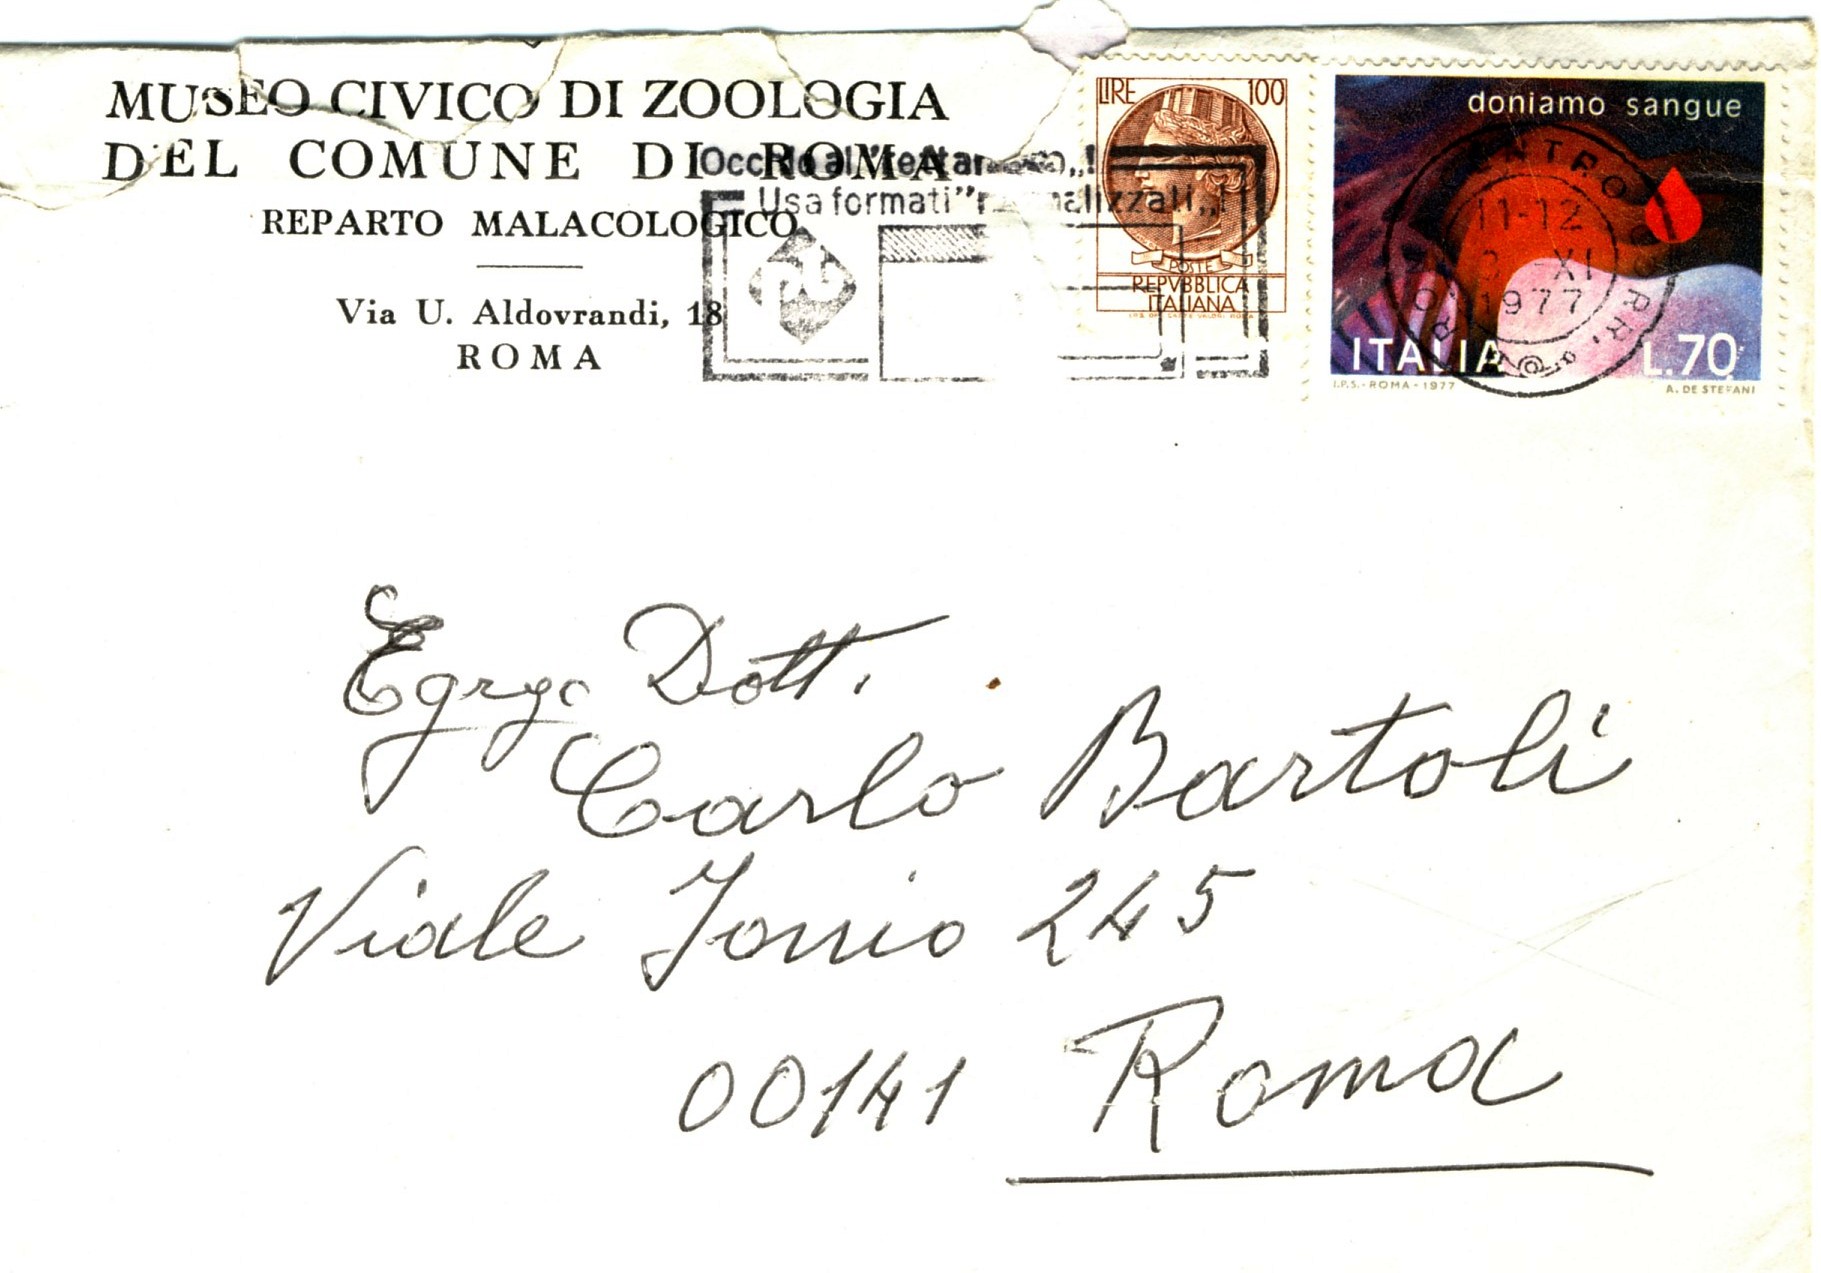 MUSEO CIVICO DI ZOOLOGIA
DEL COMUNE DI ROMA
REPARTO MALACOLOGICO
Via U. Aldovrandi, 18
ROMA
Occhio al
Usa formati
LIRE 100
POSTE
REPVBBLICA
ITALIANA
doniamo sangue
11-12
XI
1977
ITALIA L.70
I.P.S. - ROMA - 1977 A. DE STEFANI
Dott.
Carlo Bartoli
Viale Jonio 245
00141 Roma